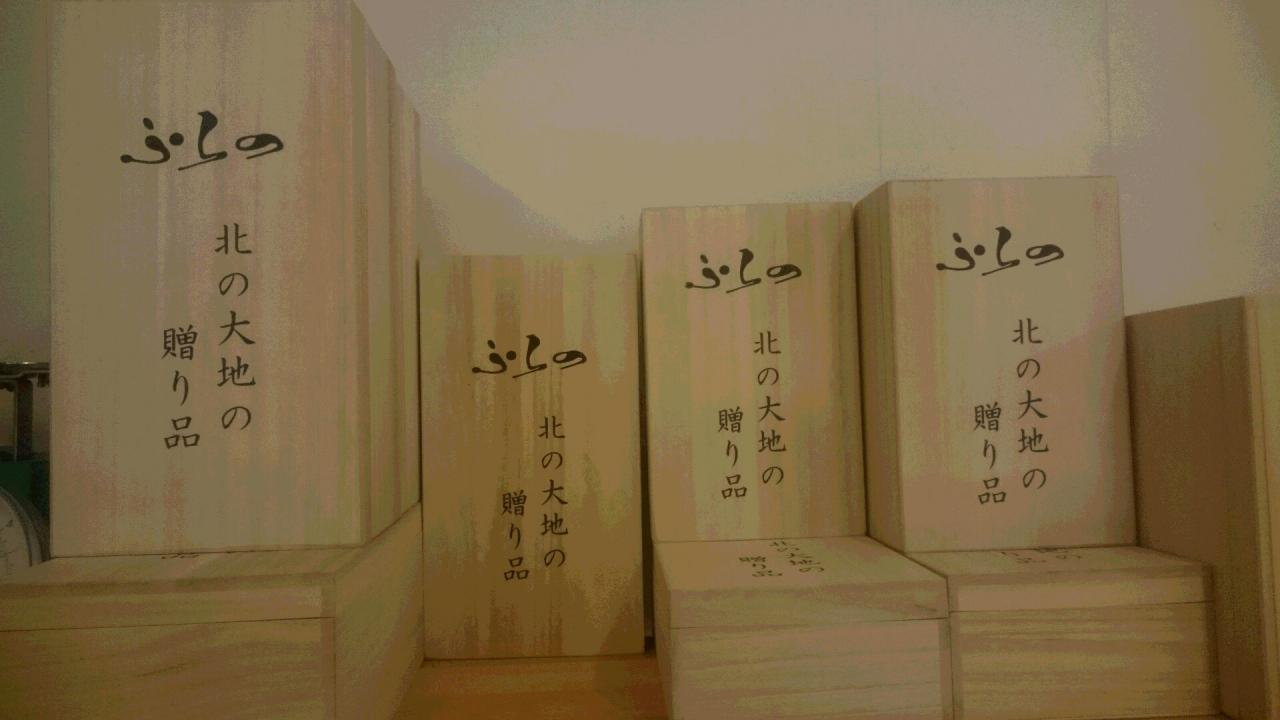 ぷしの
北の大地の
贈り品
ぷしの
北の大地の
贈り品
ぷしの
北の大地の
贈り品
ぷしの
北の大地の
贈り品
北の大地の
贈り品